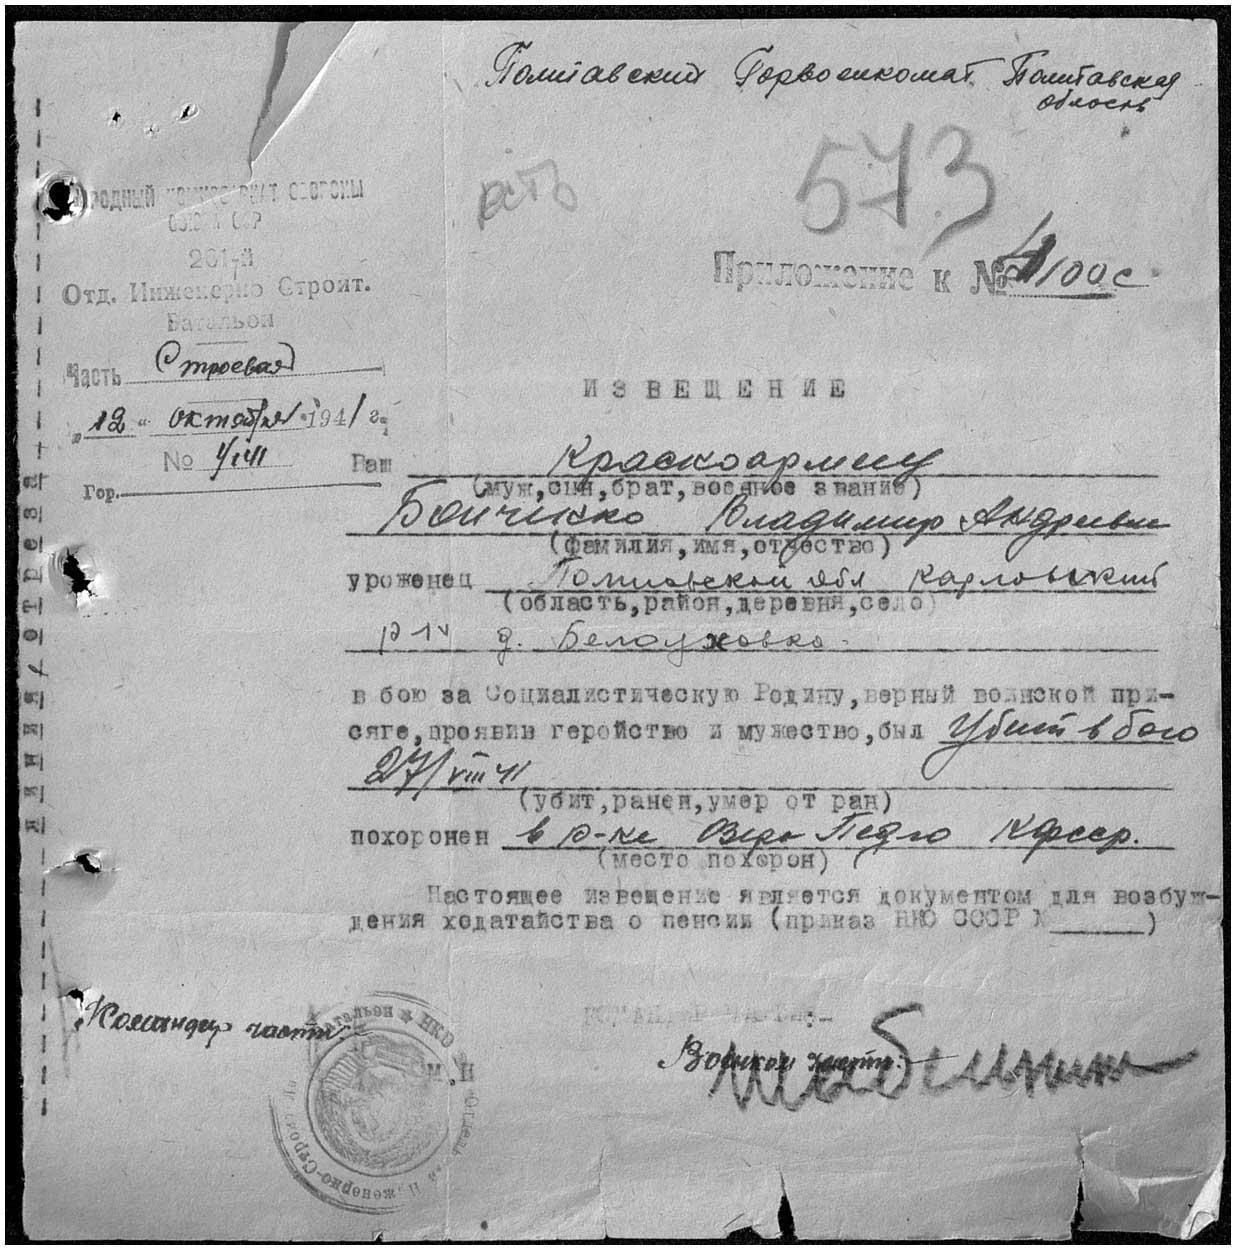 Полтавский Горвоенкомат Полтавская
область
573
НАРОДНЫЙ КОМИССАРИАТ ОБОРОНЫ
СОЮЗА ССР
261-й
Отд. Инженерно Строит.
Батальон
Часть Строевая
"12" октября 1941 г.
№ 4/141
Гор.
Приложение к № 4/100с
ИЗВЕЩЕНИЕ
Ваш Красноармеец
(муж,сын,брат,военное звание)
Бойченко Владимир Андреевич
(фамилия,имя,отчество)
уроженец Полтавской обл Карловский
(область,район,деревня,село)
р-н д. Белоуховка.
в бою за Социалистическую Родину,верный воинской при-
сяге,проявив геройство и мужество,был Убит в бою
27/VIII 41
(убит,ранен,умер от ран)
похоронен в р-не Озера КФССР.
(место похорон)
Настоящее извещение является документом для возбуж-
дения ходатайства о пенсии (приказ НКО СССР №)
КОМАНДИР ЧАСТИ
Командир части:
Военком части:
М.П.
линия отреза
Батальон ★ НКО
Инженерно-Строит